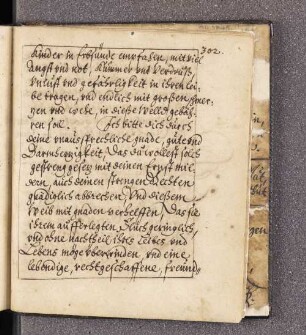 302.
Kinder in Erbsünde empfahen, mit viel
Angst vnd not, Kummer vnd Verdruß,
vnlust vnd gefährlichkeit in ihrem lei-
be tragen, vnd endlich mit großem schmer-
zen vnd wehe, in diese Welt gebäh-
ren soll. Ich bitte dich durch
deine vnaussprechliche gnade, güte vnd
Barmhertzigkeit, Das du wollest solch
gestreng gesetz mit deinen trost mil-
dern, auch deinen strengen Rechten
gnädiglich abbrechen, Vnd diesem
Weib mit gnaden verhelffen, Das sie
ihren aufferlegten Fluch geringlich,
vnd ohne nachtheil ihres Leibes vnd
Lebens möge vberwinden, vnd eine
lebendige, rechtgeschaffene, freund-